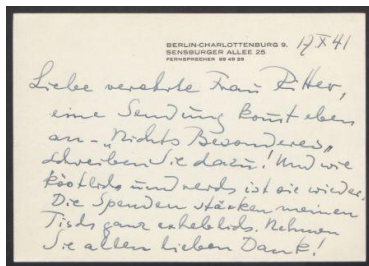 BERLIN-CHARLOTTENBURG 9,
SENSBURGER ALLEE 25
FERNSPRECHER
Liebe verehrte Frau Ritter,
eine Sendung kommt eben
an - "Nichts Besonderes"
schreiben Sie dazu! Und wie
köstlich und ist sie wieder.
Die Spenden stärken meinen
Tisch ganz erheblich. Nehmen
Sie allen lieben Dank!